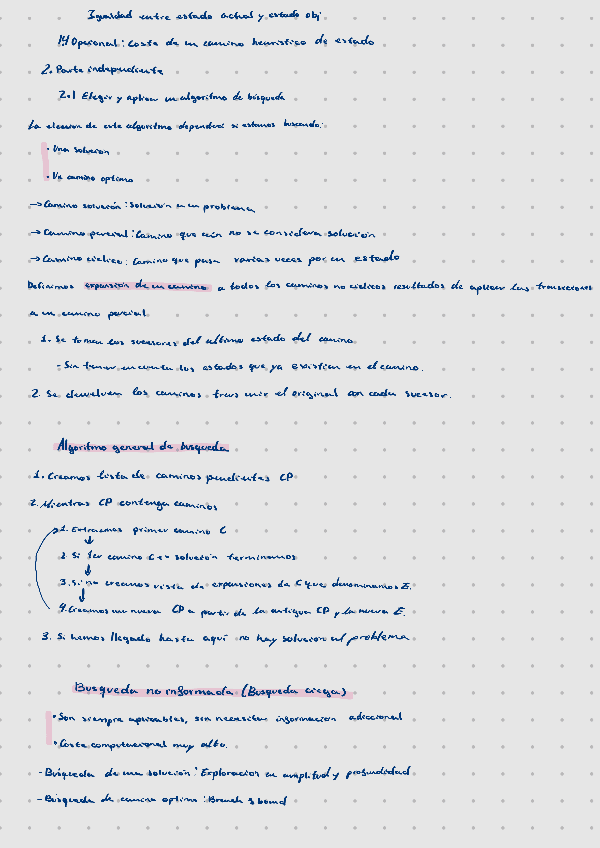 Igualdad entre estado actual y estado obj
1.4 Opcional: Coste de un camino heuristico de estado
2. Parte independiente
2.1 Elegir y aplicar un algoritmo de búsqueda
La elección de este algoritmo dependerá si estamos buscando:
• Una solución
• Un camino optimo
→ Camino solución: Solución a un problema
→ Camino parcial: Camino que aún no se considera solución
→ Camino ciclico: Camino que pasa varias veces por un estado
Definimos expansión de un camino a todos los caminos no ciclicos resultados de aplicar las transiciones
a un camino parcial
1. Se toman los sucesores del ultimo estado del camino
- Sin tener en cuenta los estados que ya existian en el camino.
2. Se devuelven los caminos tras unir el original con cada sucesor.
Algoritmo general de busqueda
1. Creamos lista de caminos pendientes CP
2. Mientras CP contenga caminos
1. Extraemos primer camino C
2. Si 1er camino C es solución terminamos
3. Si no creamos lista de expansiones de C que denominamos E.
4. Creamos un nuevo CP a partir de la antigua CP y la nueva E.
3. Si hemos llegado hasta aquí no hay solución al problema
Busqueda no informada (Busqueda ciega)
• Son siempre aplicables, sin necesitar información adiccional
• Coste computacional muy alto.
- Búsqueda de una solución: Exploración en amplitud y profundidad
- Búsqueda de camino optimo: Branch & bound